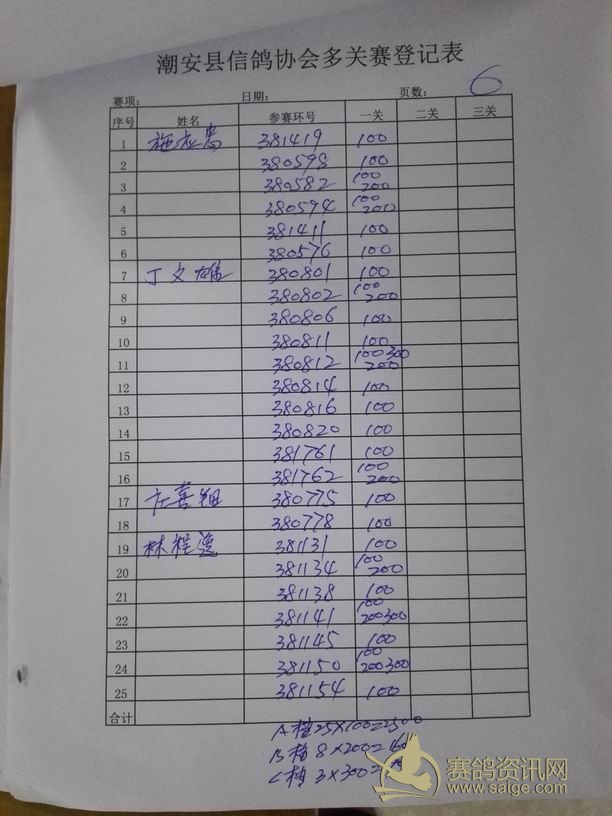 潮安县信鸽协会多关赛登记表
赛项： 日期： 页数： 6
序号 姓名 参赛环号 一关 二关 三关
1 施应 381419 100
2 380598 100
3 380582 100 200
4 380594 100 200
5 381411 100
6 380576 100
7 丁文雄 380801 100
8 380802 100 200
9 380806 100
10 380811 100
11 380812 100 300 200
12 380814 100
13 380816 100
14 380820 100
15 381761 100
16 381762 100 200
17 喜 380775 100
18 380778 100
19 林 381131 100
20 381134 100 200
21 381138 100
22 381141 100 200 300
23 381145 100
24 381150 100 200 300
25 381154 100
合计
A档 25×100=2500
B档 8×200=
C档 3×300=
赛鸽资讯网
www.saige.com